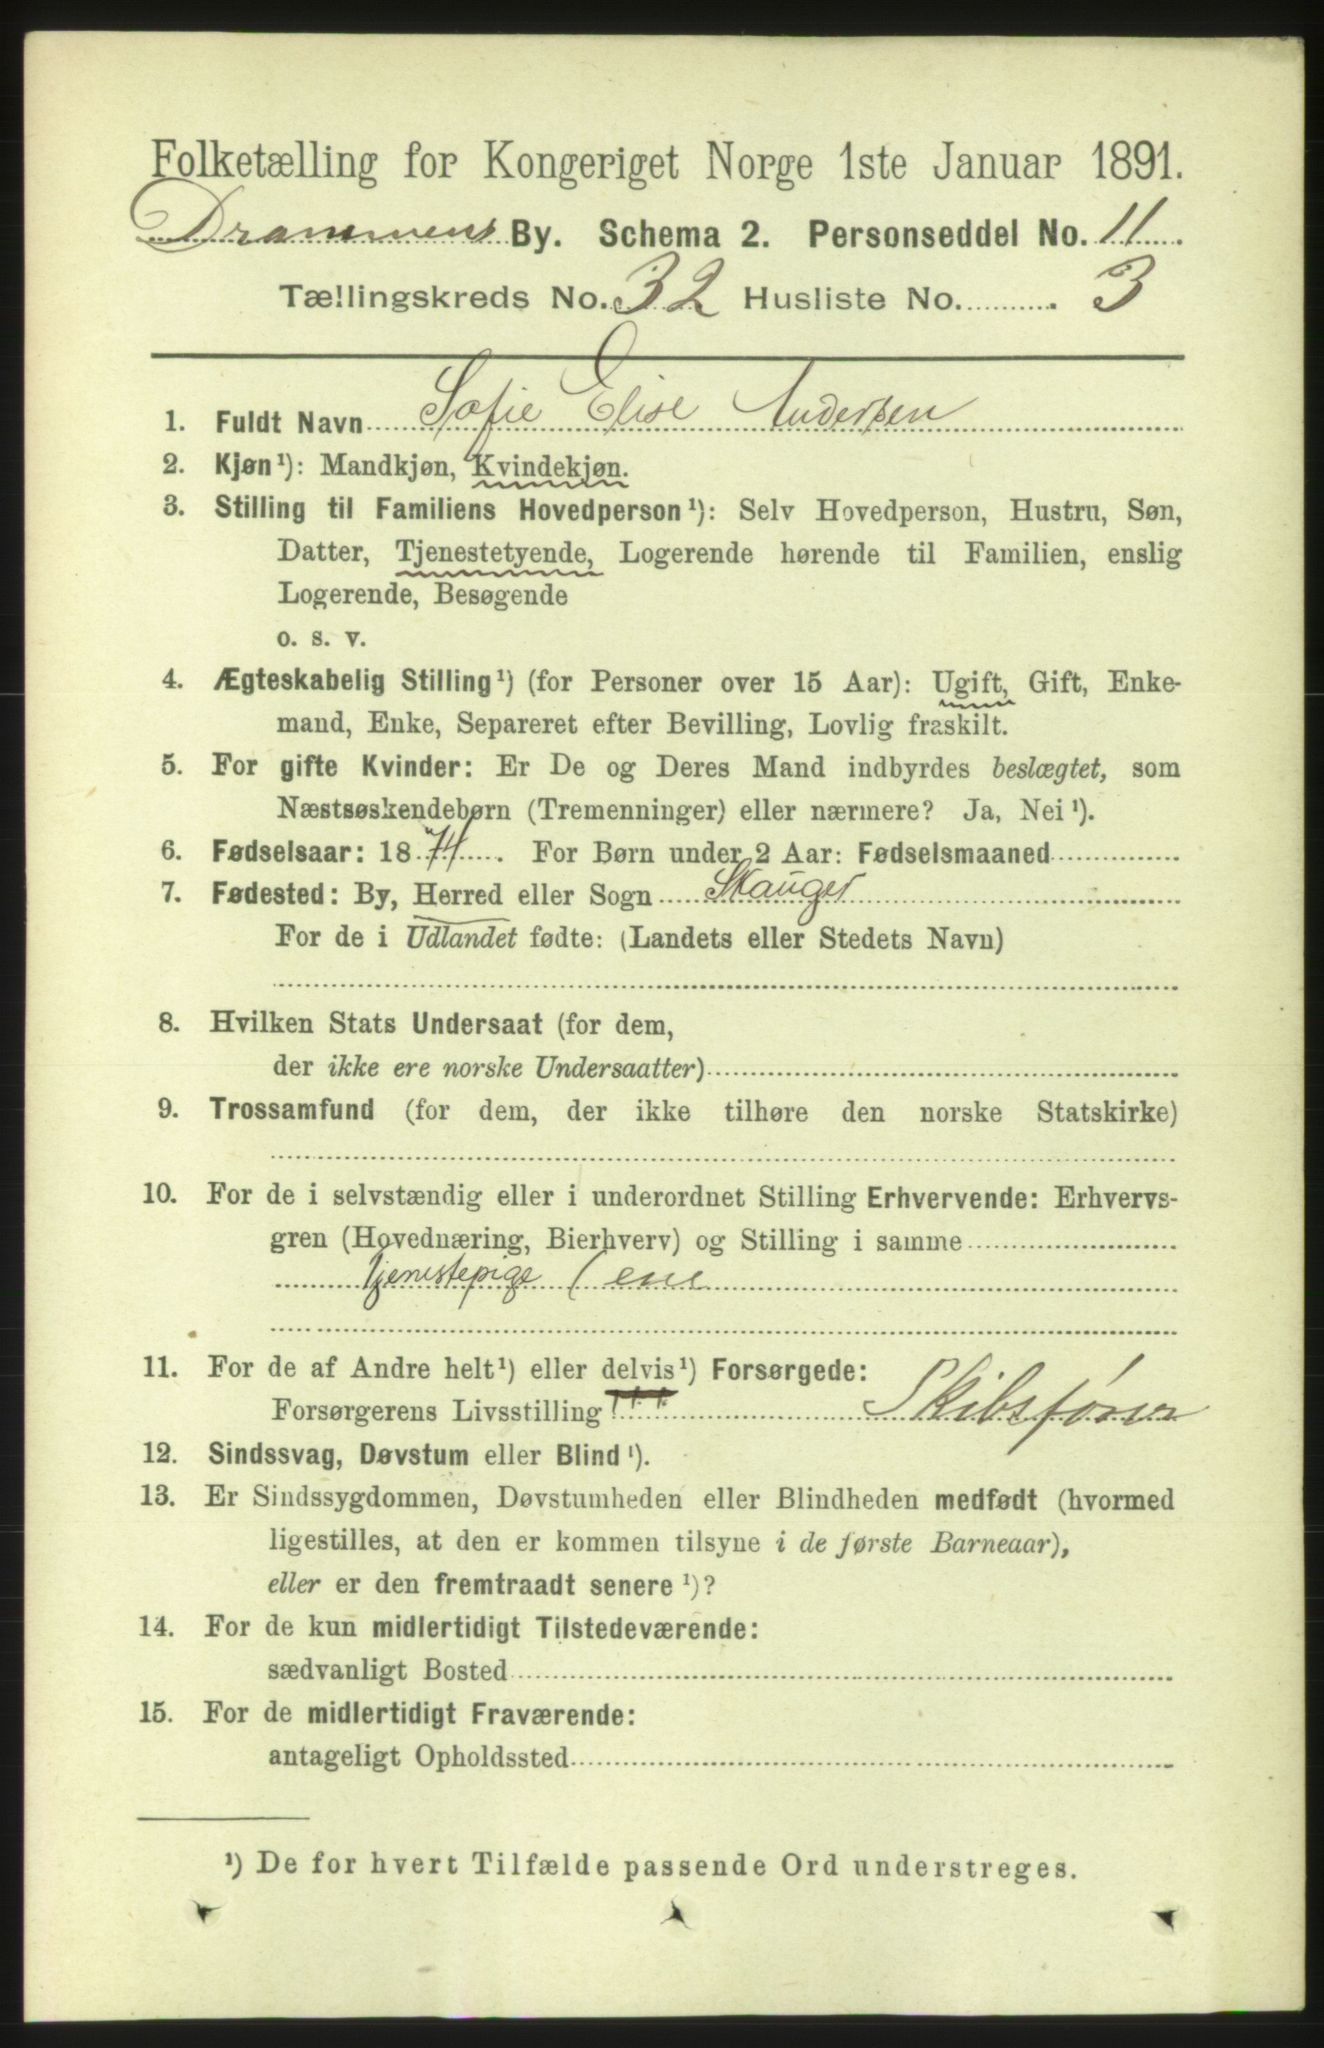 Folketælling for Kongeriget Norge 1ste Januar 1891.
Drammens By. Schema 2. Personseddel No. 11.
Tællingskreds No. 32 Husliste No. 3
1. Fuldt Navn Sofie Elise Andersen
2. Kjøn¹): Mandkjøn, Kvindekjøn.
3. Stilling til Familiens Hovedperson¹): Selv Hovedperson, Hustru, Søn,
Datter, Tjenestetyende, Logerende hørende til Familien, enslig
Logerende, Besøgende
o. s. v.
4. Ægteskabelig Stilling¹) (for Personer over 15 Aar): Ugift, Gift, Enke-
mand, Enke, Separeret efter Bevilling, Lovlig fraskilt.
5. For gifte Kvinder: Er De og Deres Mand indbyrdes beslægtet, som
Næstsøskendebørn (Tremenninger) eller nærmere? Ja, Nei¹).
6. Fødselsaar: 1874. For Børn under 2 Aar: Fødselsmaaned
7. Fødested: By, Herred eller Sogn Skauger
For de i Udlandet fødte: (Landets eller Stedets Navn)
8. Hvilken Stats Undersaat (for dem,
der ikke ere norske Undersaatter)
9. Trossamfund (for dem, der ikke tilhøre den norske Statskirke)
10. For de i selvstændig eller i underordnet Stilling Erhvervende: Erhvervs-
gren (Hovednæring, Bierhverv) og Stilling i samme
Tjenestepige (ene
11. For de af Andre helt¹) eller delvis¹) Forsørgede:
Forsørgerens Livsstilling Skibsfører
12. Sindssvag, Døvstum eller Blind¹).
13. Er Sindssygdommen, Døvstumheden eller Blindheden medfødt (hvormed
ligestilles, at den er kommen tilsyne i de første Barneaar),
eller er den fremtraadt senere¹)?
14. For de kun midlertidigt Tilstedeværende:
sædvanligt Bosted
15. For de midlertidigt Fraværende:
antageligt Opholdssted
¹) De for hvert Tilfælde passende Ord understreges.